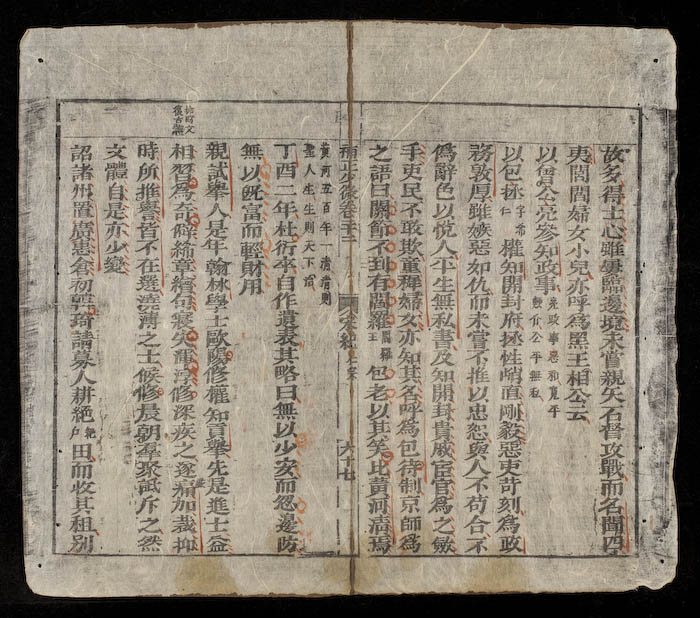 故多得士心雖屢臨邊境未嘗親矢石督攻戰而名聞四
夷閭閻婦女小兒亦呼為黑王相公云
以曾公亮參知政事
以包拯字希仁權知開封府拯性峭直剛毅惡吏苛刻為政
務敦厚雖嫉惡如仇而未嘗不推以忠恕與人不苟合不
偽辭色以悅人平生無私書及知開封貴戚宦官為之斂
手吏民不敢欺童稚婦女亦知其名呼為包待制京師為
之語曰關節不到有閻羅閻羅王包老以其笑比黃河清焉
黃河五百年一清清則
聖人生生則天下治
丁酉二年杜衍卒自作遺表其略曰無以少安而忽邊防
無以既富而輕財用
親試舉人是年翰林學士歐陽修權知貢舉先是進士益
相習為奇僻鉤章繢句寖失渾淳修深疾之遂痛加裁抑
時所推譽皆不在選澆薄之士候修晨朝羣聚詆斥之然
文體自是亦少變
詔諸州置廣惠倉初韓琦請募人耕絕絕戶田而收其租別
六十七